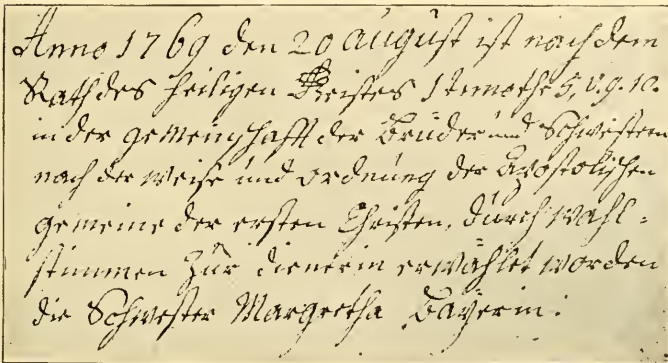 Anno 1769 den 20 august ist nach dem
Rath des heiligen Geistes 1 Timothe 5, v. 9. 10.
in der gemeinschafft der Brüder und Schwestern
nach der weise und ordnung der apostolischen
gemeine der ersten Christen, durch wahl-
stimmen zur dienerin erwählet worden
die Schwester Margretha Bayerin.